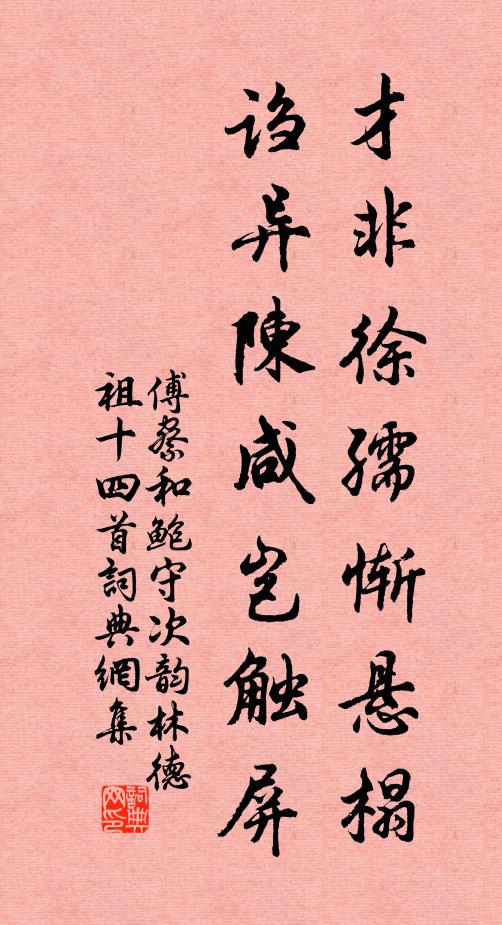 才非徐孺惭悬榻
谄异陳咸岂触屏
傅察和鲍守次韵林德
祖十四首詞典網集
詞典网印